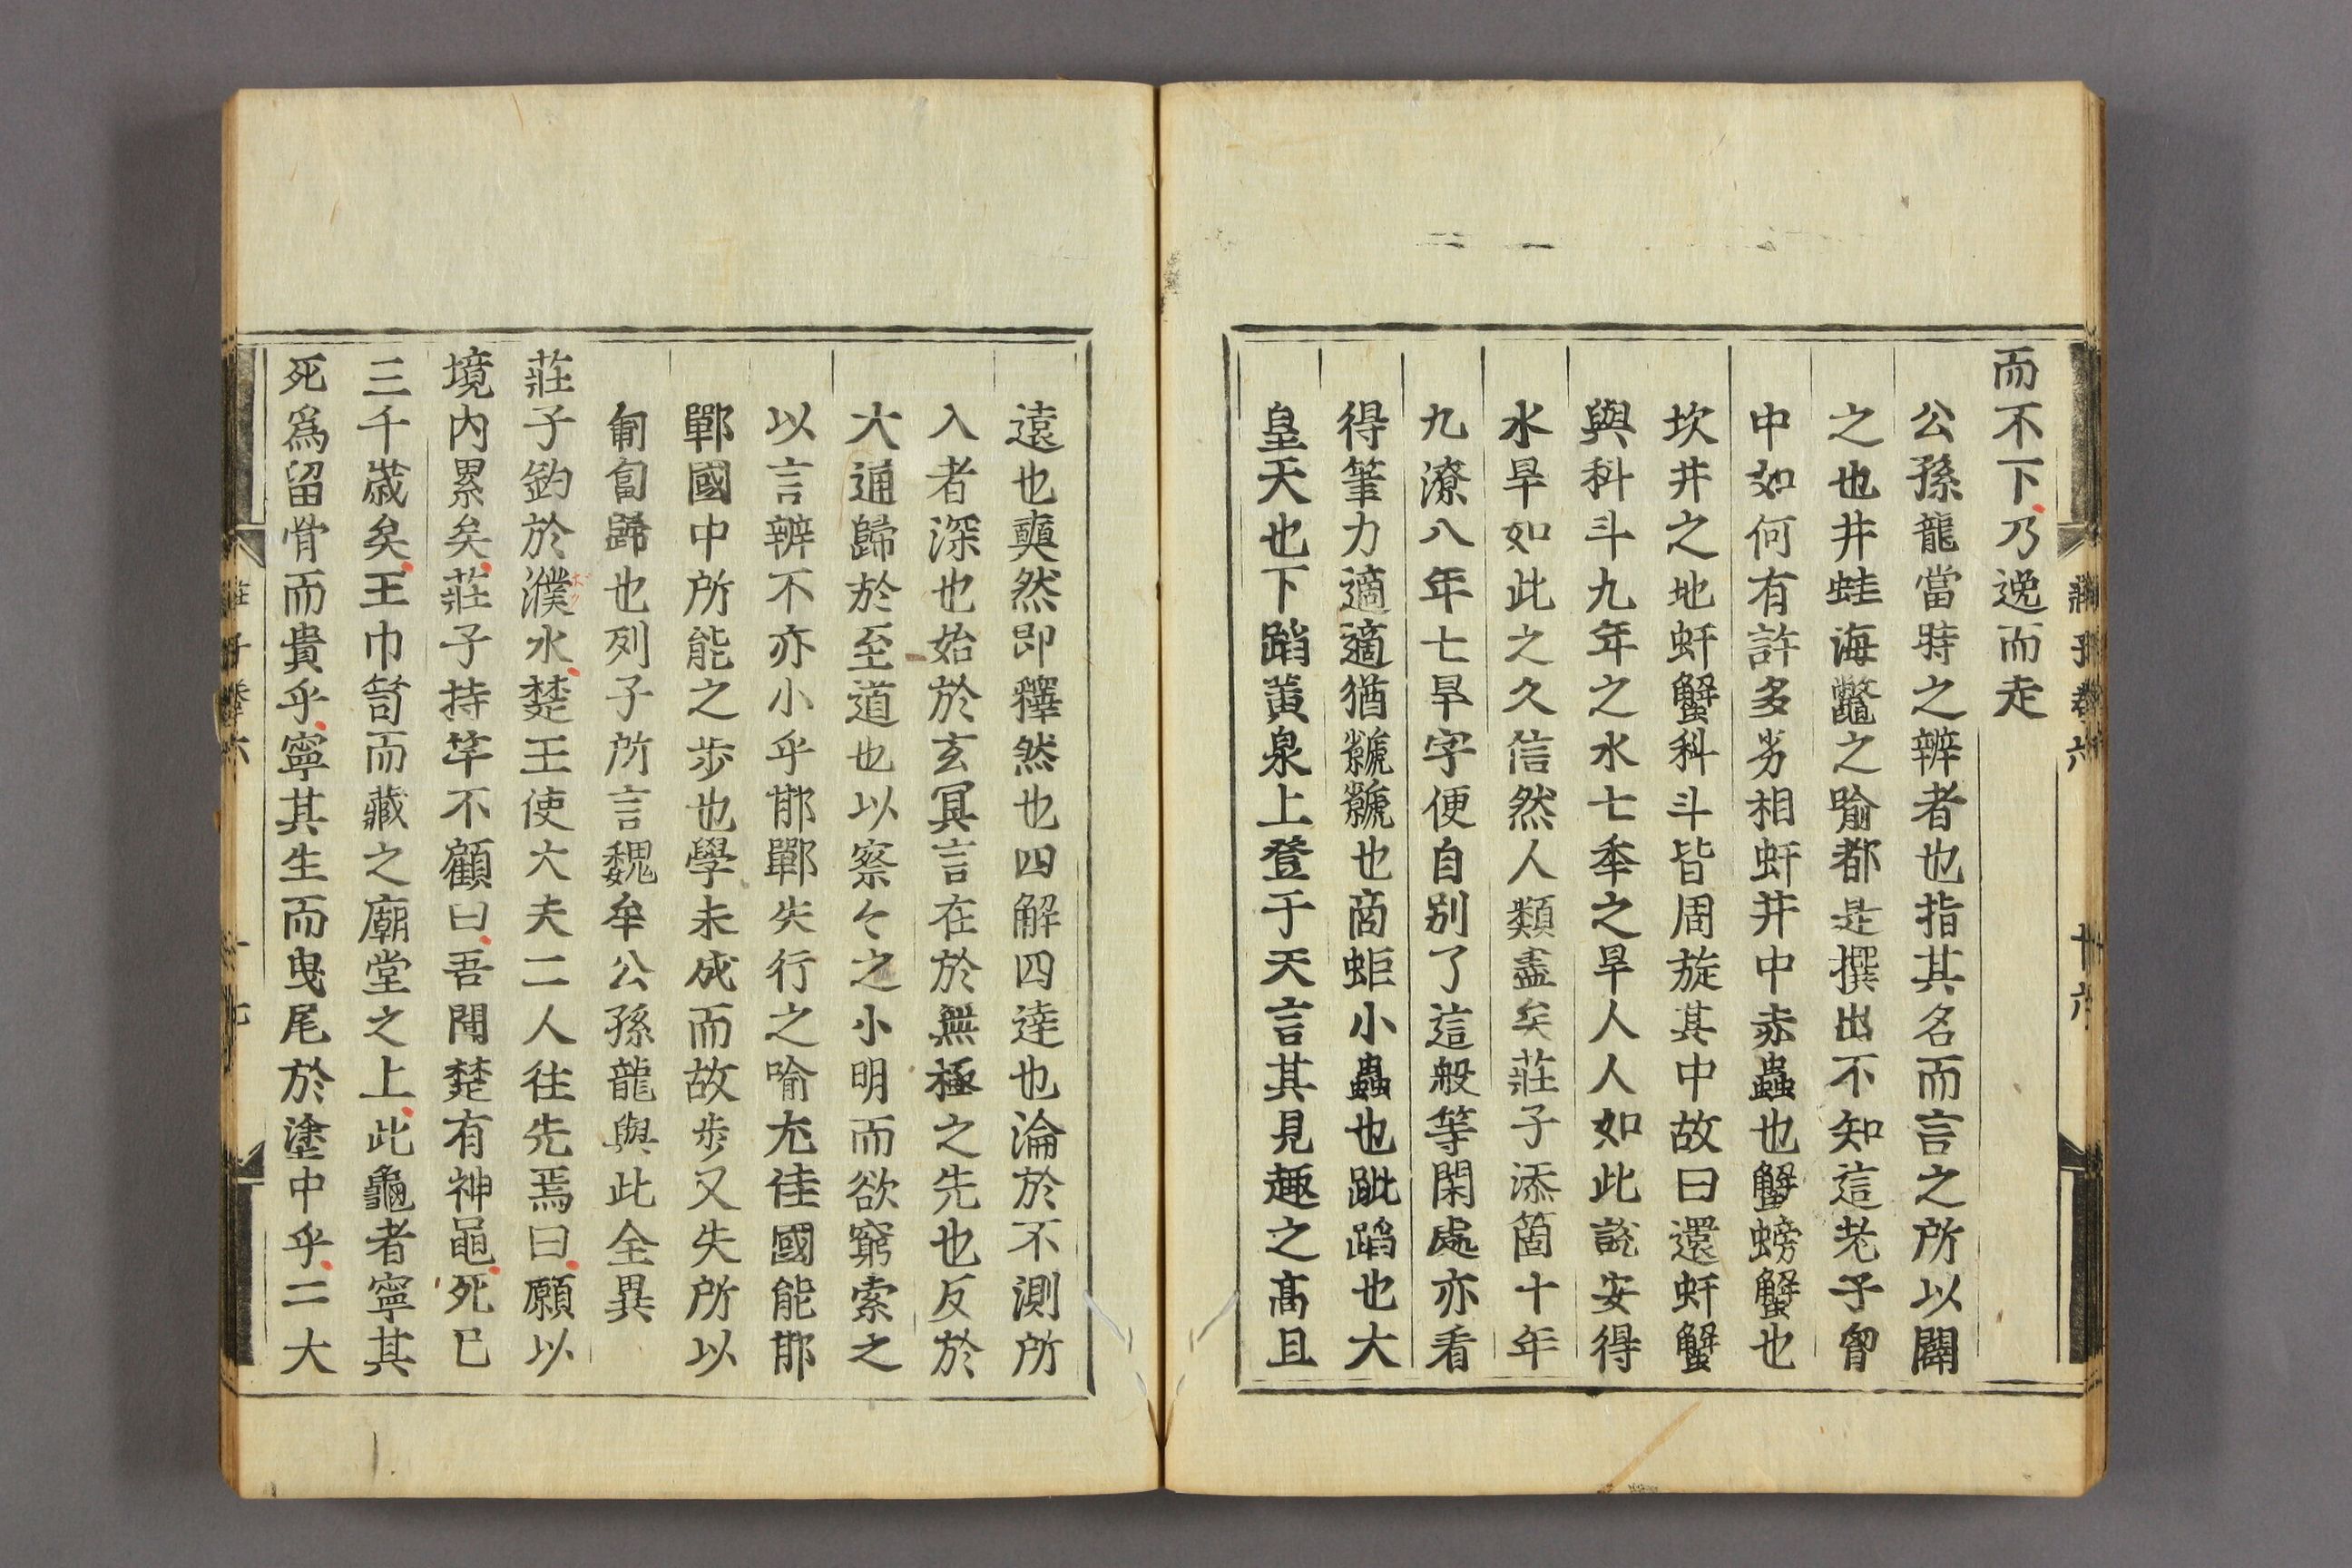 莊子卷六
十六
而不下乃逸而走
公孫龍當時之辨者也指其名而言之所以闢
之也井蛙海鼈之喻都是撰出不知這老子胷
中如何有許多劣相虷井中赤蟲也蟹螃蟹也
坎井之地虷蟹科斗皆周旋其中故曰還虷蟹
與科斗九年之水七年之旱人人如此說安得
水旱如此之久信然人類盡矣莊子添箇十年
九潦八年七旱字便自別了這般等閑處亦看
得筆力適適猶虩虩也商蚷小蟲也跐蹈也大
皇天也下蹈黃泉上登于天言其見趣之高且
遠也奭然即釋然也四解四達也淪於不測所
入者深也始於玄冥言在於無極之先也反於
大通歸於至道也以察々之小明而欲窮索之
以言辨不亦小乎邯鄲失行之喻尤佳國能邯
鄲國中所能之步也學未成而故步又失所以
匍匐歸也列子所言魏牟公孫龍與此全異
莊子釣於濮水楚王使大夫二人往先焉曰願以
境内累矣莊子持竿不顧曰吾聞楚有神龜死已
三千歲矣王巾笥而藏之廟堂之上此龜者寧其
死爲留骨而貴乎寧其生而曳尾於塗中乎二大
莊子卷六
十七